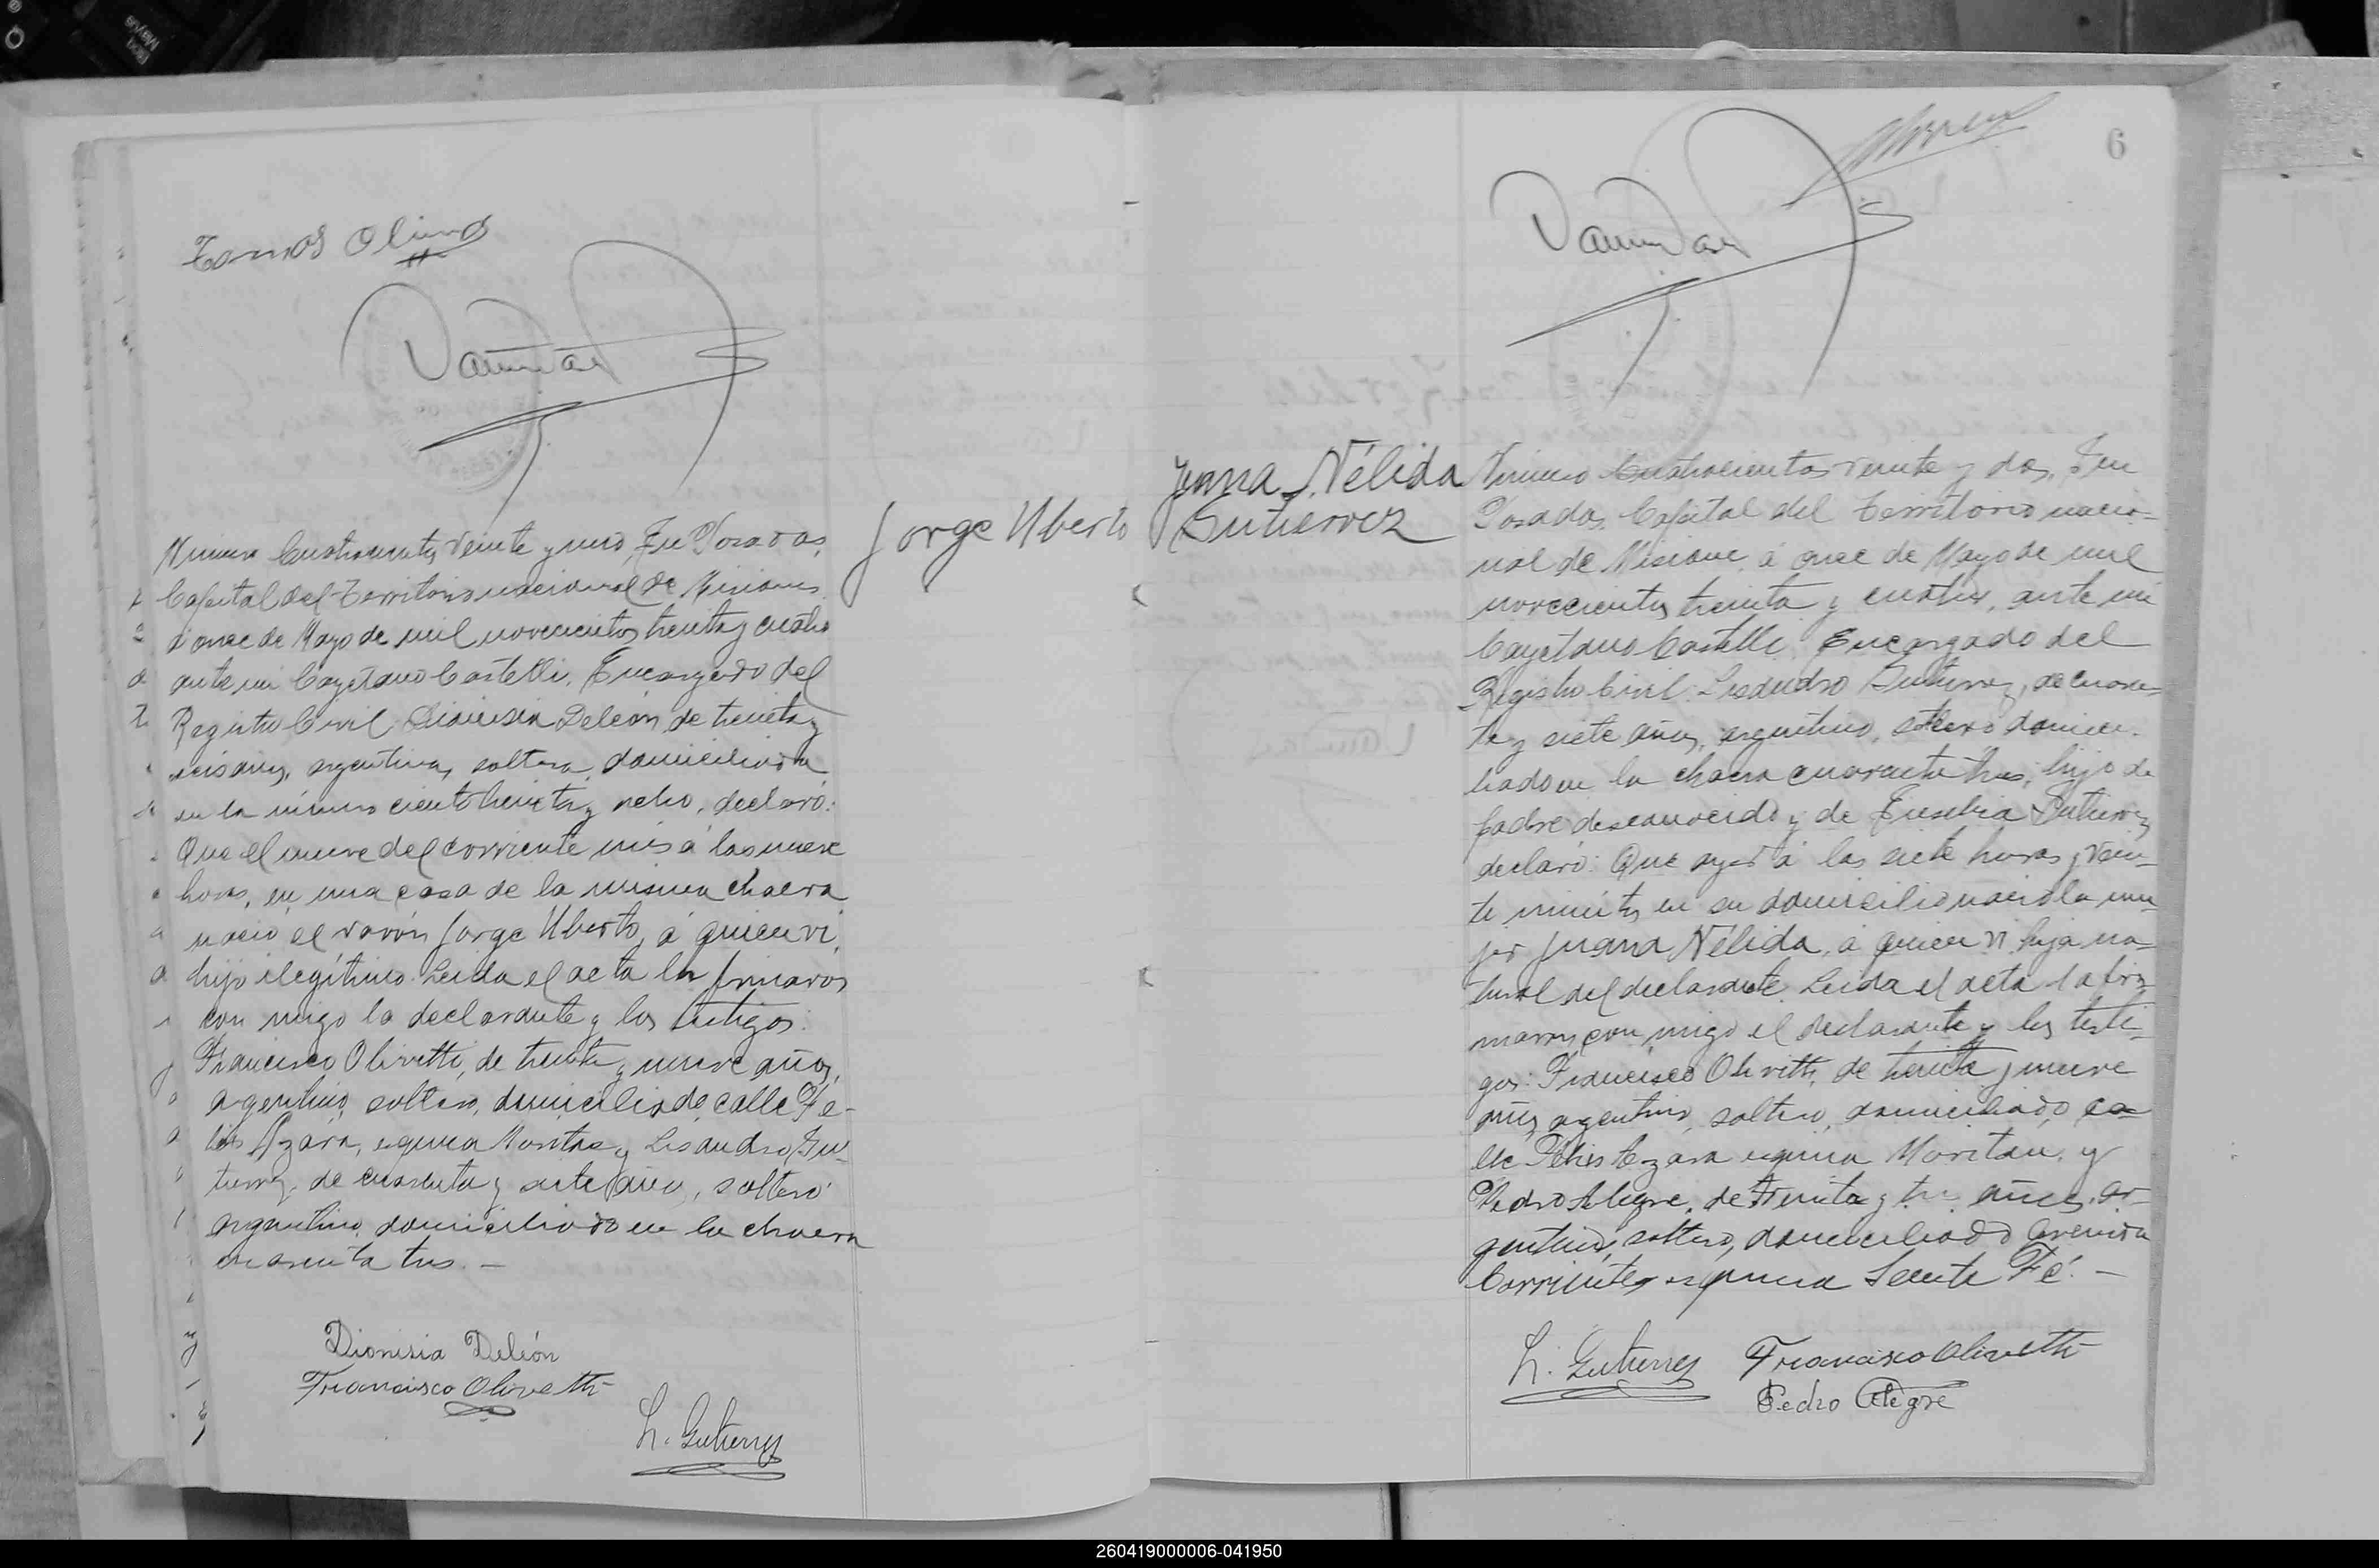 Tomás Olivo
Número Cuatrocientos veinte y uno, En Posadas,
Capital del Territorio nacional de Misiones
á once de Mayo de mil novecientos treinta y cuatro
ante mi Cayetano Castelli, Encargado del
Registro Civil: Dionisia Deleón, de treinta y
seis años, argentina, soltera, domiciliada
en la número ciento treinta y ocho, declaró:
Que el nueve del corriente mes á las nueve
horas, en una casa de la misma chacra
nació el varón Jorge Uberto, á quien ví,
hijo ilegítimo. Leida el acta la firmaron
con migo la declarante y los testigos:
Francisco Olivetti, de treinta y nueve años,
argentino, soltero, domiciliado calle Fe-
lis Azara, esquina Moritan y Lisandro Gu-
tierrez, de cuarenta y siete años, soltero
argentino, domiciliado en la chacra
cuarenta tres. —
Dionisia Deleón
Francisco Olivetti
L. Gutierrez
Jorge Uberto
6
Juana Nélida
Gutierrez
Número Cuatrocientos veinte y dos, En
Posadas, Capital del Territorio nacio-
nal de Misiones, á once de Mayo de mil
novecientos treinta y cuatro, ante mi
Cayetano Castelli, Encargado del
Registro Civil: Lisandro Gutierrez, de cuaren-
ta y siete años, argentino, soltero domici-
liado en la chacra cuarenta tres, hijo de
padre desconocido y de Eusebia Gutierrez
declaró: Que ayer á las siete horas y vein-
te minutos en su domicilio nació la mu-
jer Juana Nélida, á quien ví hija na-
tural del declarante. Leida el acta la fir-
maron con migo el declarante y los testi-
gos: Francisco Olivetti, de treinta y nueve
años, argentino, soltero, domiciliado, ca-
lle Felis Azara esquina Moritan, y
Pedro Alegre, de treinta y tres años, ar-
gentino, soltero, domiciliado Avenida
Corrientes esquina Santa Fé. —
L. Gutierrez Francisco Olivetti
Pedro Alegre
260419000006-041950